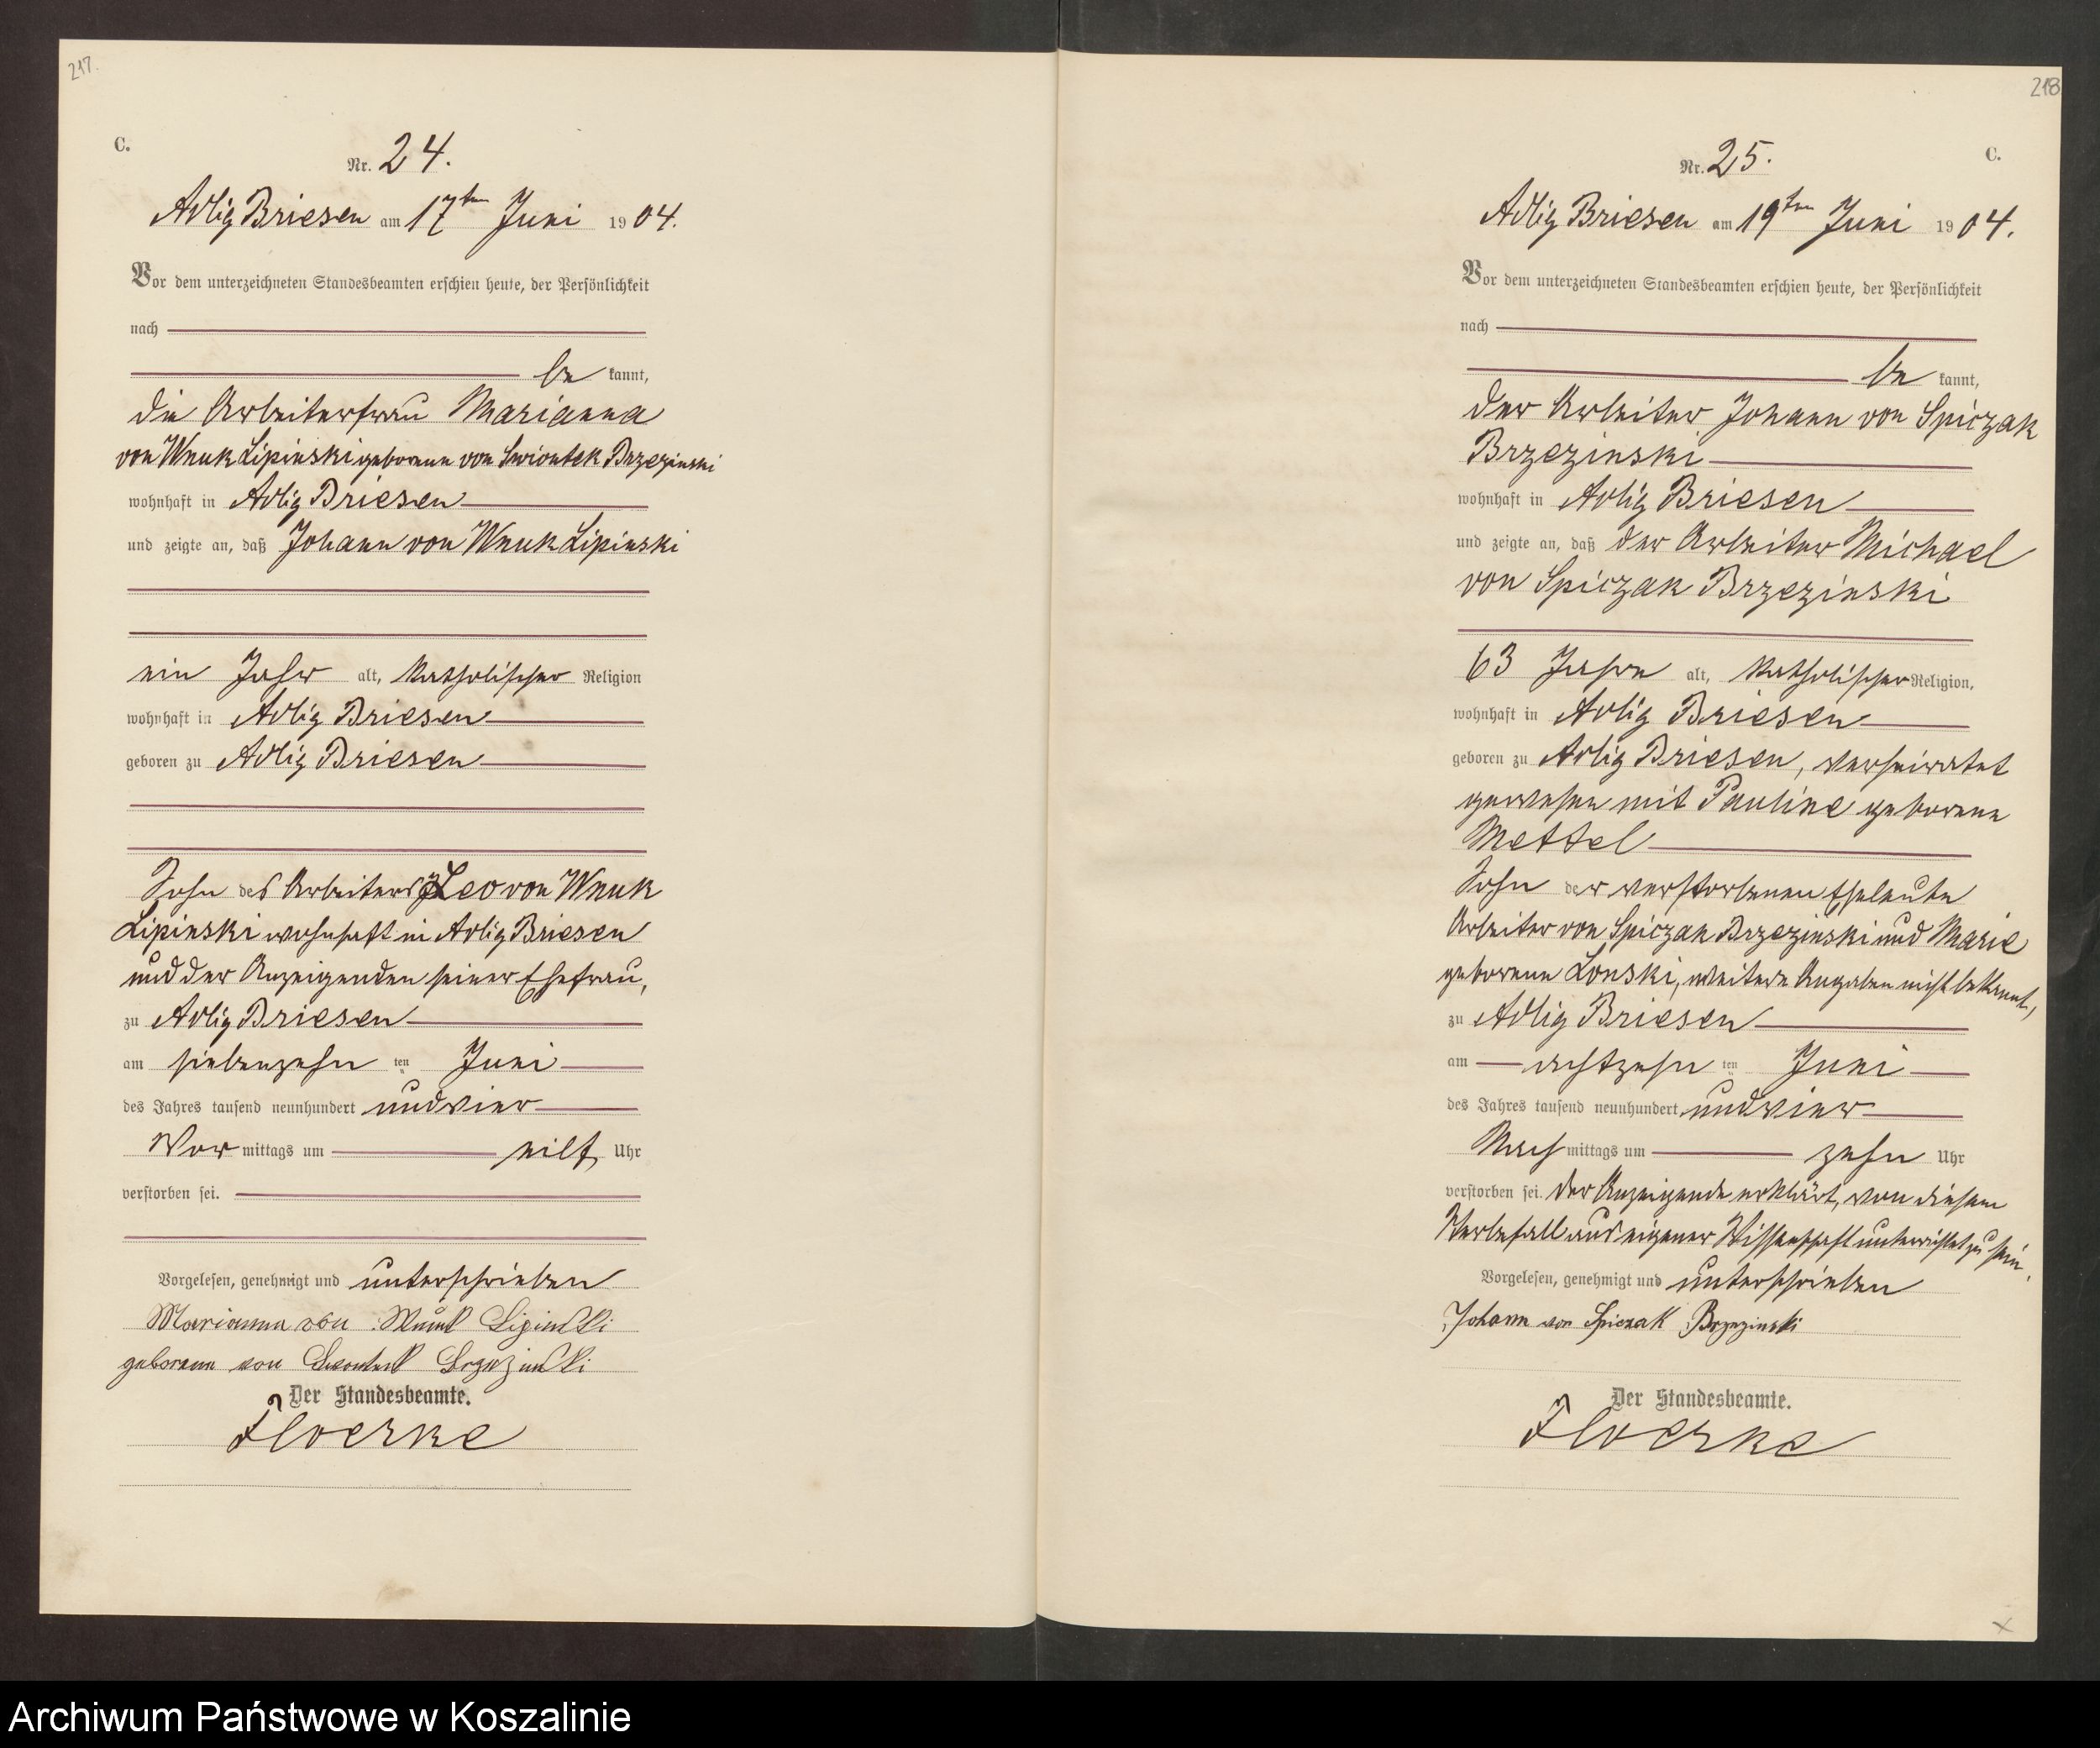 217.
C.
Nr. 24.
Adlig Briesen am 17ten Juni 1904.
Vor dem unterzeichneten Standesbeamten erschien heute, der Persönlichkeit
nach
be kannt,
die Arbeiterfrau Marianna
von Wnuk Lipinski geborene von Swiontek Brzezinski
wohnhaft in Adlig Briesen
und zeigte an, daß Johann von Wnuk Lipinski
ein Jahr alt, katholischer Religion
wohnhaft in Adlig Briesen
geboren zu Adlig Briesen
Sohn des Arbeiters Leo von Wnuk
Lipinski wohnhaft in Adlig Briesen
und der Anzeigenden seiner Ehefrau,
zu Adlig Briesen
am siebenzehn ten Juni
des Jahres tausend neunhundert und vier
Vor mittags um eilf Uhr
verstorben sei.
Vorgelesen, genehmigt und unterschrieben
Marianna von Wnuk Lipinski
geborenn von Swontek Brzezinski
Der Standesbeamte.
Floerke
218
C.
Nr. 25.
Adlig Briesen am 19ten Juni 1904.
Vor dem unterzeichneten Standesbeamten erschien heute, der Persönlichkeit
nach
be kannt,
der Arbeiter Johann von Spiczak
Brzezinski
wohnhaft in Adlig Briesen
und zeigte an, daß der Arbeiter Michael
von Spiczak Brzezinski
63 Jahre alt, katholischer Religion,
wohnhaft in Adlig Briesen
geboren zu Adlig Briesen, verheiratet
gewesen mit Pauline geborene
Mettel
Sohn der verstorbenen Eheleute
Arbeiter von Spiczak Brzezinski und Marie
geborene Lonski, weitere Angaben nicht bekannt,
zu Adlig Briesen
am achtzehn ten Juni
des Jahres tausend neunhundert und vier
Nach mittags um zehn Uhr
verstorben sei. Der Anzeigende erklärt, von diesem
Sterbefall aus eigener Wissenschaft unterrichtet zu sein.
Vorgelesen, genehmigt und unterschrieben
Johann von Spiczak Brzezinski
Der Standesbeamte.
Floerke
Archiwum Państwowe w Koszalinie